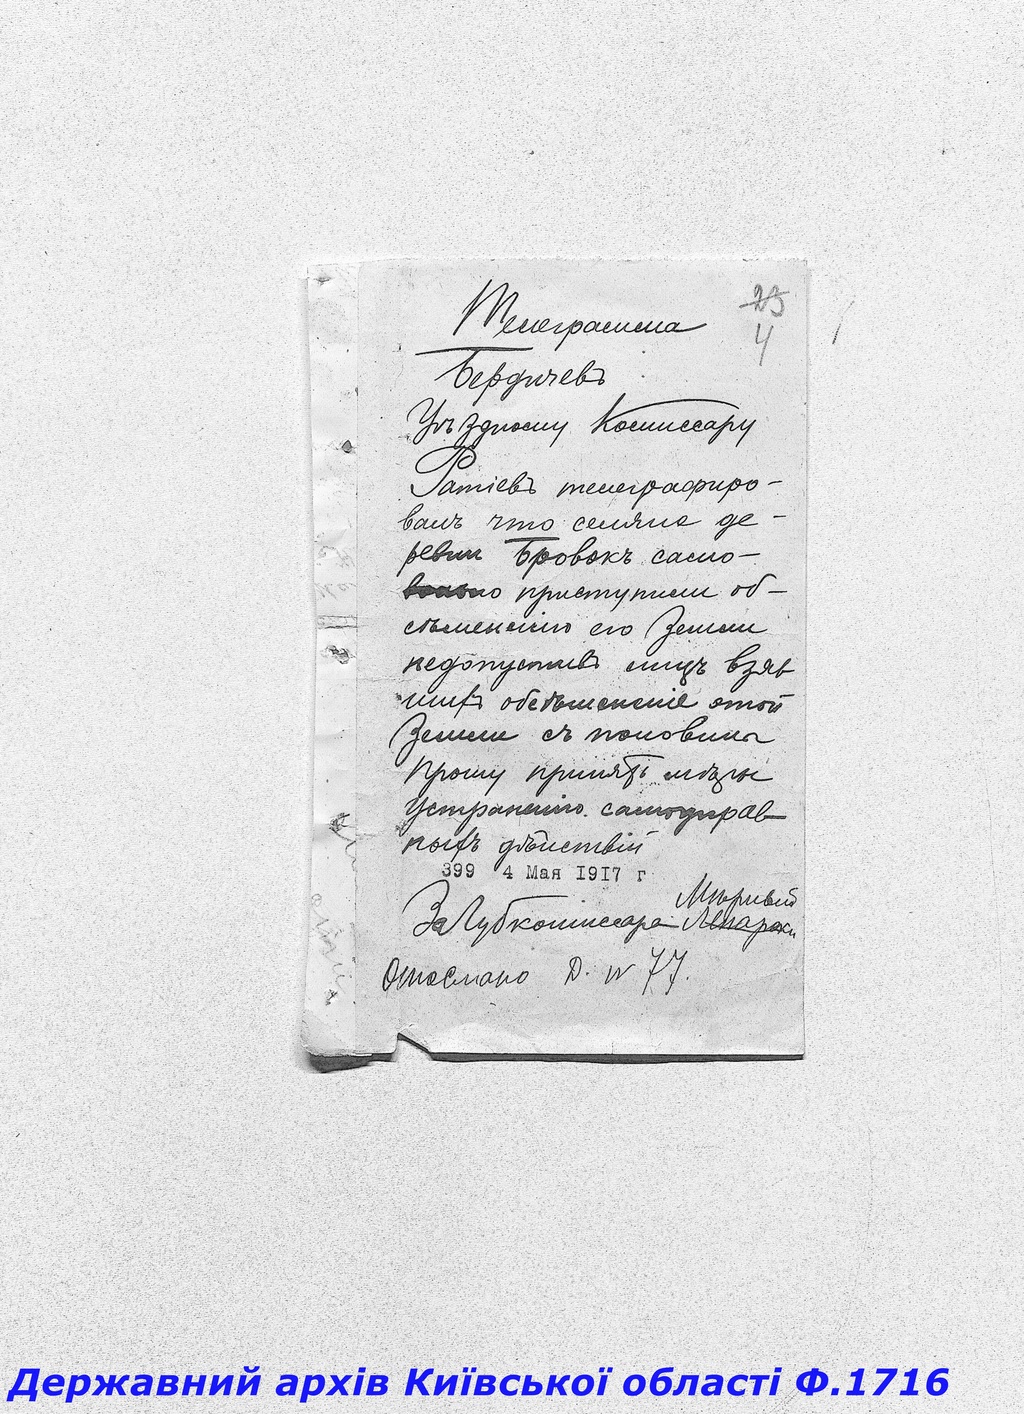 23
4
Телеграмма
Бердичевъ
Уѣздному Комиссару
Ратіевъ телеграфиро-
валъ что селяне де-
ревни Бровокъ само-
вольно приступили об-
сѣмененію его Земли
недопустивъ лицъ взяв
шихъ обсѣмененіе этой
Земли съ половины
Прошу принять мѣры
Устраненію самоуправ-
ныхъ дѣйствій
399 4 Мая 1917 г
За Губкомиссара
Отослано Д. № 77.
Державний архів Київської області Ф.1716